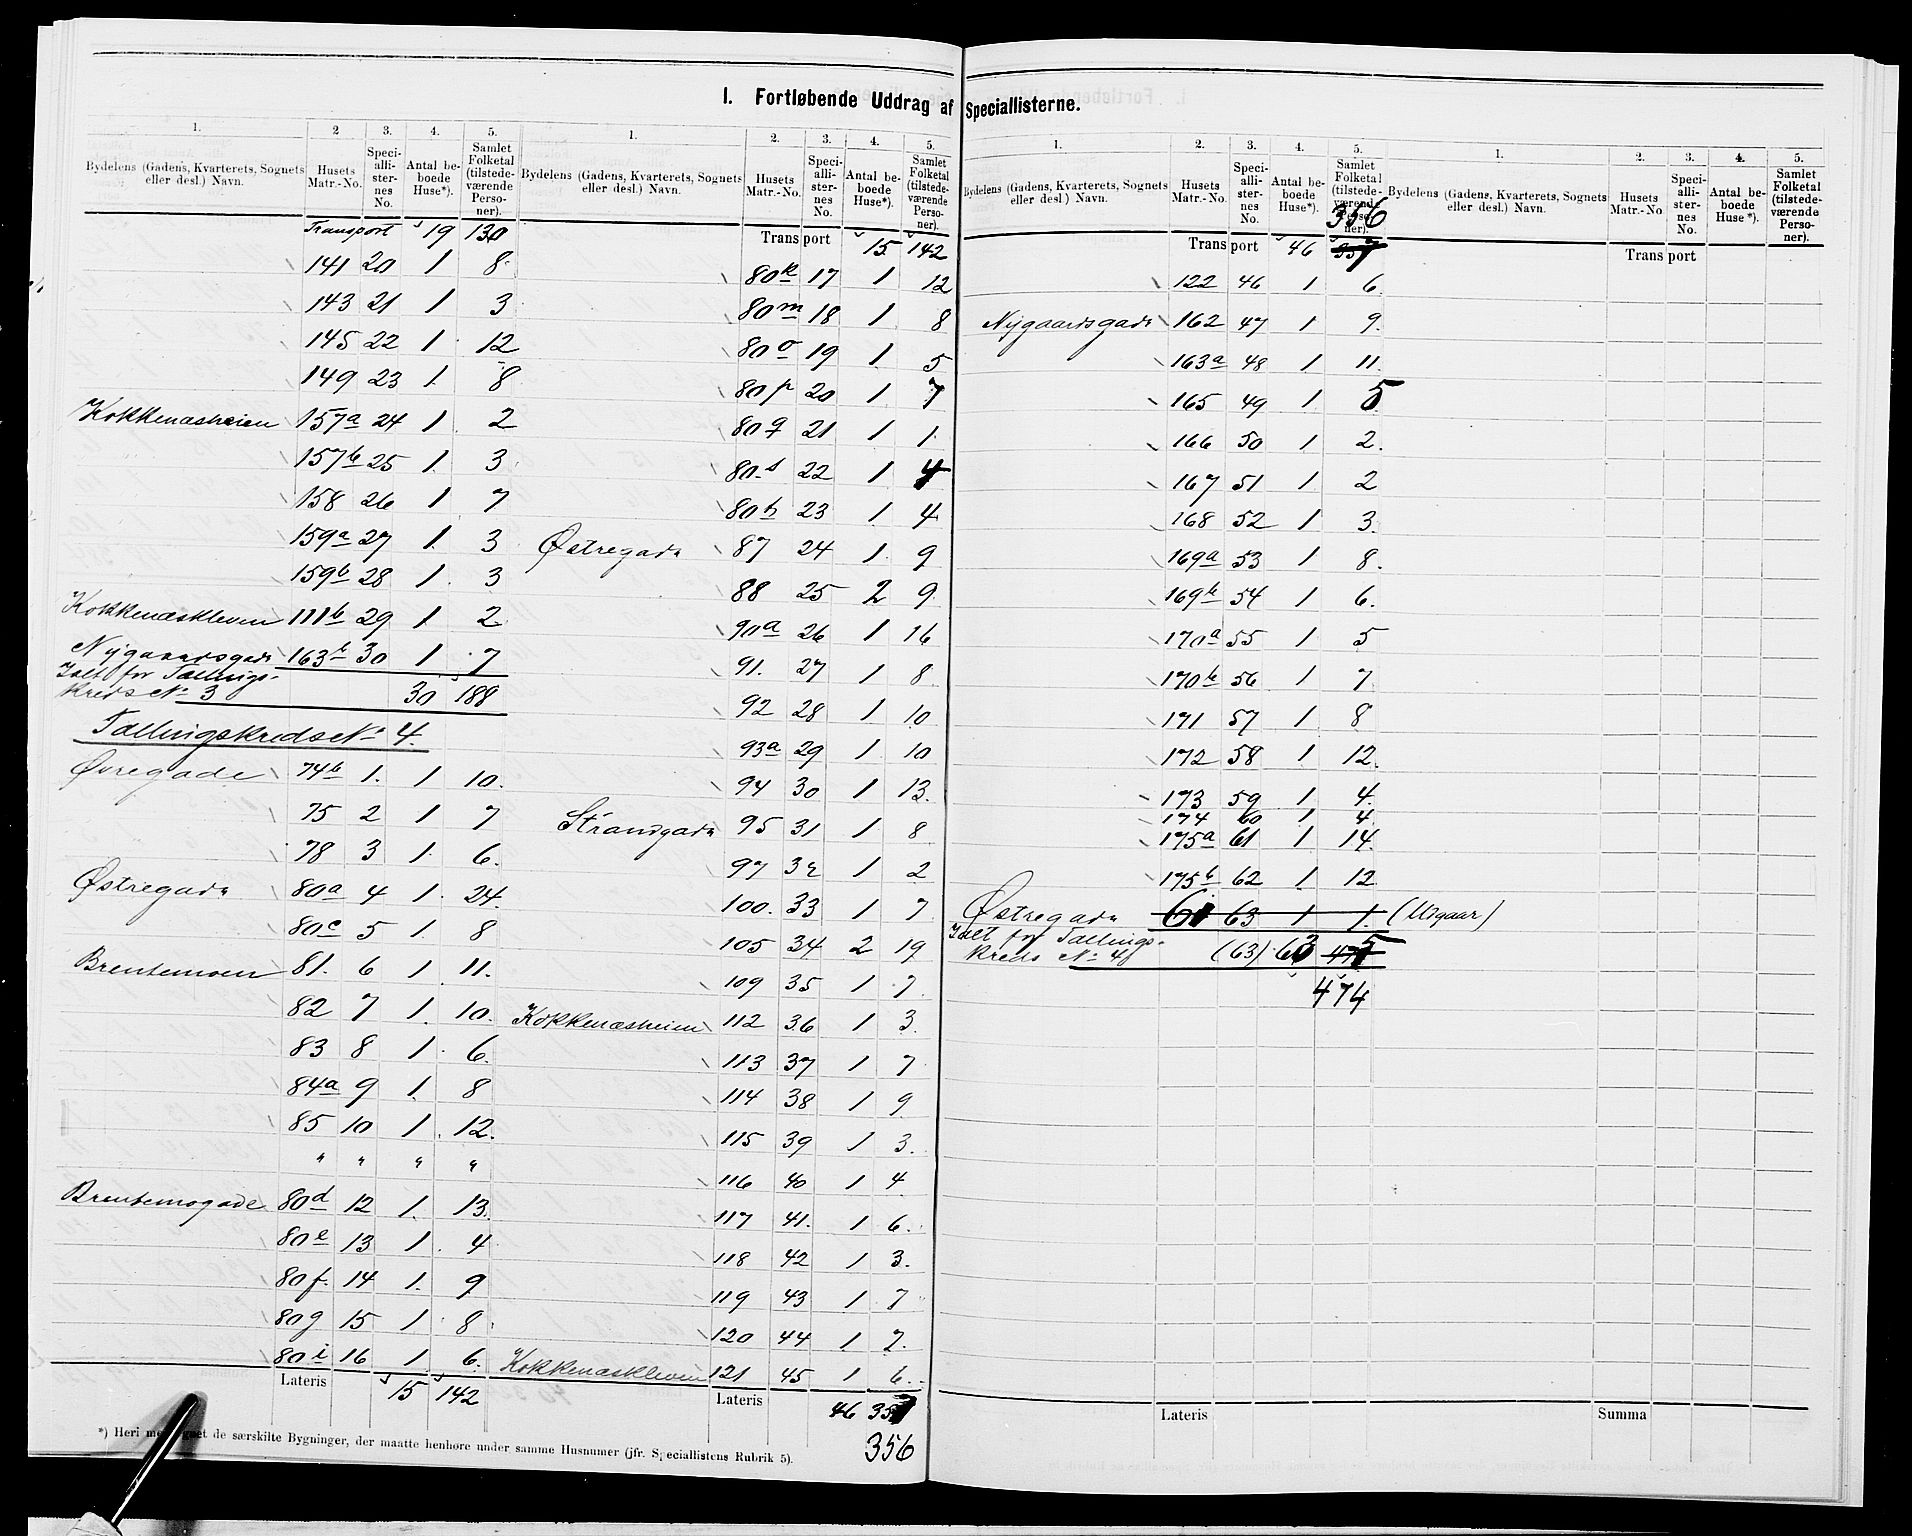 I. Fortløbende Uddrag af Speciallisterne.
1. 2 3. 4. 5.
Bydelens (Gadens, Kvarterets, Sognets eller desl.) Navn. Husets Matr.-No. Speciallisternes No. Antal beboede Huse*). Samlet Folketal (tilstedeværende Personer).
Transport 19 130
141 20 1 8
143 21 1 3
145 22 1 12
149 23 1 8
Kokkenæsheien 157a 24 1 2
157b 25 1 3
158 26 1 7
159a 27 1 3
159b 28 1 3
Kokkenæskleven 111b 29 1 2
Nygaardsgade 163b 30 1 7
Ialt for Tællings-
kreds No 3 30 188
Tællingskreds No 4.
Øvregade 74b 1. 1 10.
75 2 1 7
78 3 1 6.
Østregade 80a 4 1 24.
80c 5 1 8
Brentemoen 81. 6 1 11.
82 7 1 10.
83 8 1 6.
84a 9 1 8
85 10 1 12.
" " " "
Brentemogade 80d 12 1 13.
80e 13 1 4
80f. 14 1. 9
80g 15 1 8
80i 16 1 6.
Lateris 15 142
*) Heri medregnet de særskilte Bygninger, der maatte henhøre under samme Husnumer (jfr. Speciallistens Rubrik 5).
1. 2. 3. 4. 5.
Bydelens (Gadens, Kvarterets, Sognets eller desl.) Navn. Husets Matr.-No. Speciallisternes No. Antal beboede Huse*). Samlet Folketal (tilstedeværende Personer).
Transport 15 142
80k 17 1 12
80m 18 1 8
80o 19 1 5
80p 20 1 7
80q 21 1 1
80s 22 1 4
80h 23 1 4
Østregade 87 24 1 9
88 25 2 9
90a 26 1 16
91. 27 1 8
92 28 1 10
93a 29 1 10
94 30 1 13.
Strandgade 95 31 1 8
97 32 1 2
100. 33 1 7
105 34 2 19
109 35 1 7
Kokkenæsheien 112 36 1 3
113 37 1 7
114 38 1 9
115 39 1 3.
116 40 1 4
117 41. 1 6.
118 42 1 3.
119 43 1 7
120 44 1 7.
Kokkenæskleven 121 45 1 6.
Lateris 46 357
356
1. 2. 3. 4. 5.
Bydelens (Gadens, Kvarterets, Sognets eller desl.) Navn. Husets Matr.-No. Speciallisternes No. Antal beboede Huse*). Samlet Folketal (tilstedeværende Personer).
356
Transport 46 357
122 46 1 6.
Nygaardsgade 162 47 1 9.
163a 48 1 11.
165 49 1 5
166 50 1 2.
167 51 1 2
168 52 1 3.
169a 53 1 8.
169b 54 1 6.
170a 55 1 5
170b 56 1 7.
171 57 1 8
172 58 1 12.
173 59 1 4.
174 60 1 4.
175a 61 1 14.
175b 62 1 12
Østregade 61 63 1 1. (Udgaar)
Ialt for Tællings-
kreds No 4 (63) 63 475
474
Lateris
1. 2. 3. 4. 5.
Bydelens (Gadens, Kvarterets, Sognets eller desl.) Navn. Husets Matr.-No. Speciallisternes No. Antal beboede Huse*). Samlet Folketal (tilstedeværende Personer).
Transport
Summa